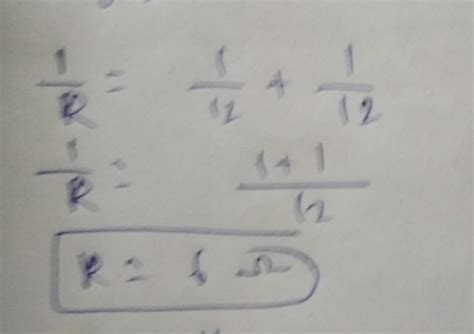 1/R = 1/12 + 1/12
1/R = 1+1/12
R = 6 Ω